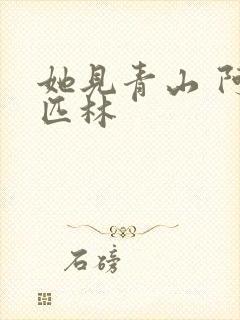 她见青山 阿
匹林
石磅